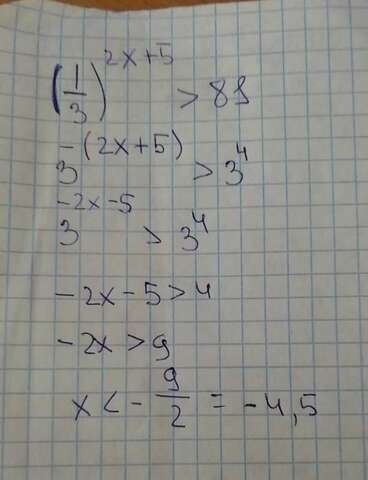 (1/3)^(2x+5) > 81
3^(-(2x+5)) > 3^4
3^(-2x-5) > 3^4
-2x-5>4
-2x>9
x<-9/2=-4,5